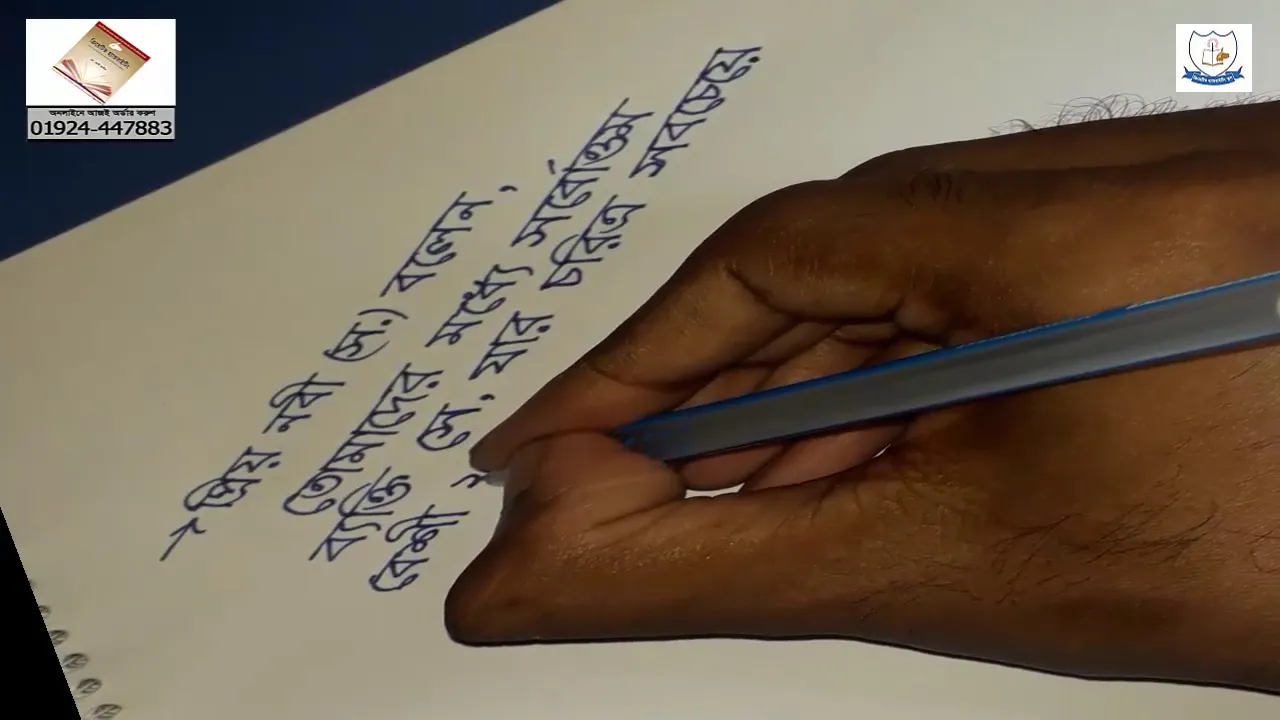 অনলাইনে আজই অর্ডার করুণ
01924-447883
→ প্রিয় নবী (স.) বলেন,
তোমাদের মধ্যে সর্বোত্তম
ব্যক্তি সে, যার চরিত্র সবচেয়ে
বেশী